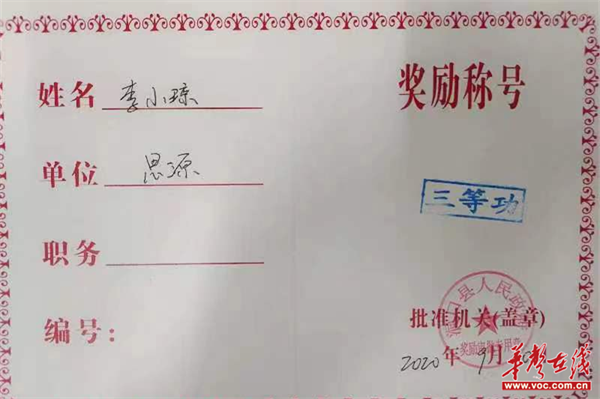 姓名 李小琼
单位 思源
职务
编号:
奖励称号
三等功
县人民政
批准机关(盖章)
2020年9月
华声在线
www.voc.com.cn